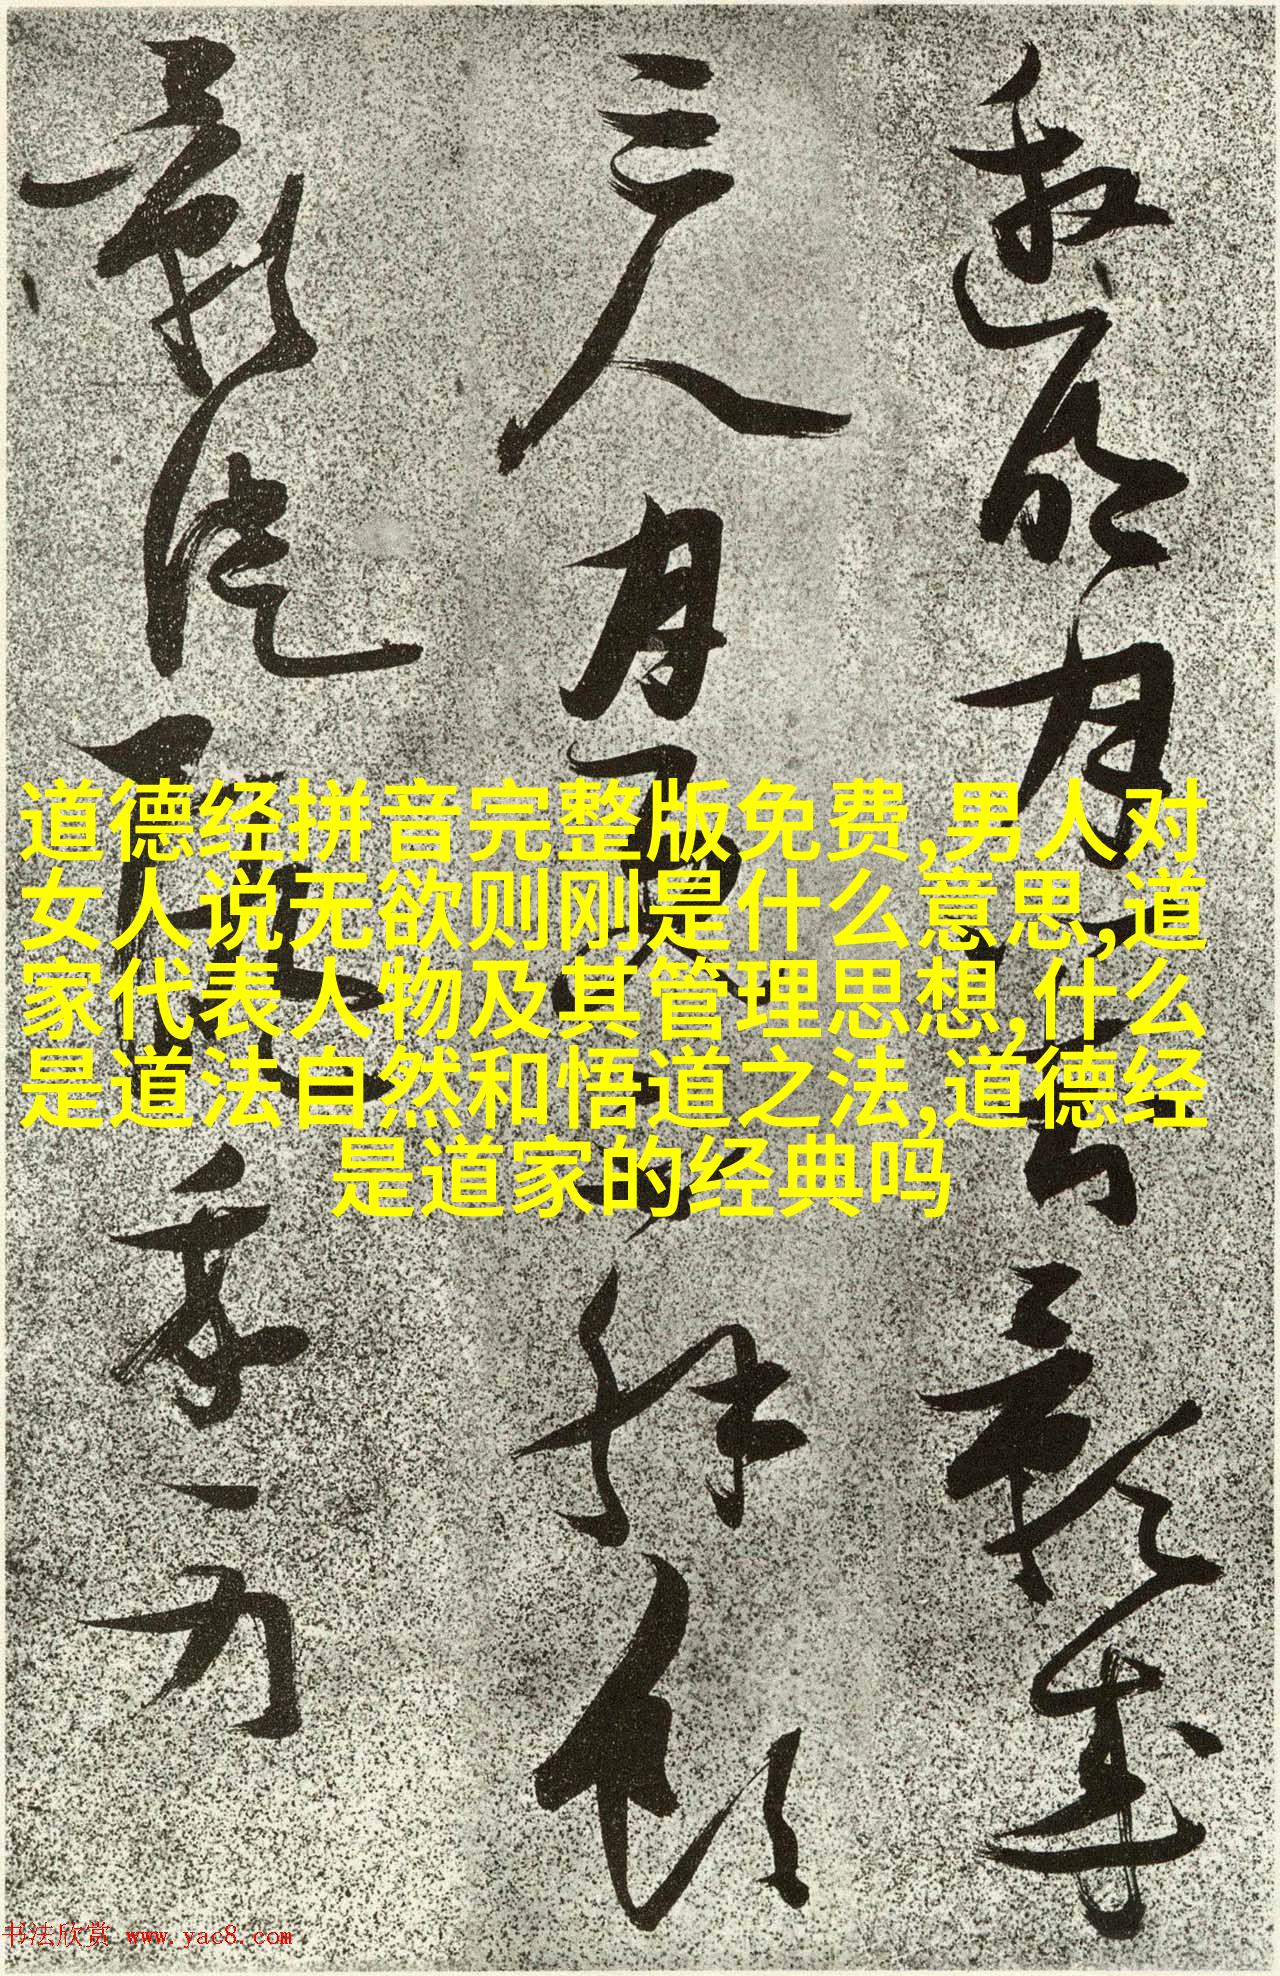 邀明月對影成
三人月既不解飲
影徒隨
道德经拼音完整版免费,男人对
女人说无欲则刚是什么意思,道
家代表人物及其管理思想,什么
是道法自然和悟道之法,道德经
是道家的经典吗
书法欣赏 www.yac8.com